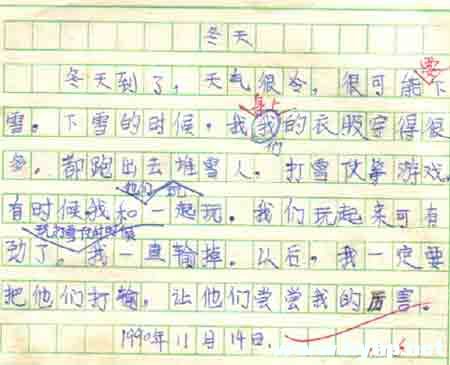 冬天
要
冬天到了,天气很冷,很可能下
身上
雪。下雪的时候,我我的衣服穿得很
们
多。都跑出去堆雪人。打雪仗等游戏。
他们
有时候我和一起玩。我们玩起来可有
玩打雪仗的时候
劲了。我一直输掉。以后,我一定要
把他们打输,让他们尝尝我的厉害。
1990年11月14日.